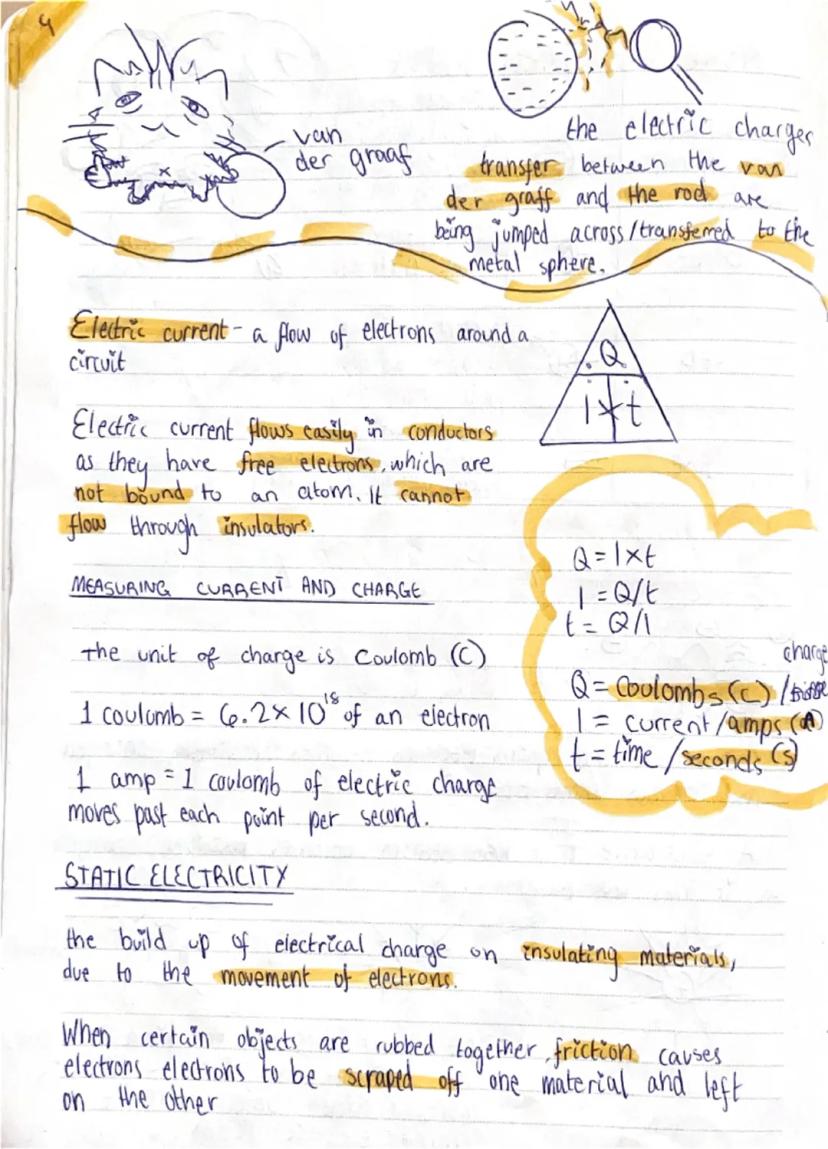 4
van
der graaf
the electric charges
transfer between the van
der graff and the rod are
being jumped across/transferred to the
metal sphere.
Electric current - a flow of electrons around a
circuit
Q
I × t
Electric current flows easily in conductors
as they have free electrons, which are
not bound to an atom. It cannot
flow through insulators.
Q = I × t
I = Q/t
t = Q/I
MEASURING CURRENT AND CHARGE
the unit of charge is Coulomb (C)
charge
Q = Coulombs (C) /
1 coulomb = 6.2 × 10¹⁸ of an electron
I = current/amps (A)
t = time/seconds (s)
1 amp = 1 coulomb of electric charge
moves past each point per second.
STATIC ELECTRICITY
the build up of electrical charge on insulating materials,
due to the movement of electrons.
When certain objects are rubbed together, friction causes
electrons electrons to be scraped off one material and left
on the other